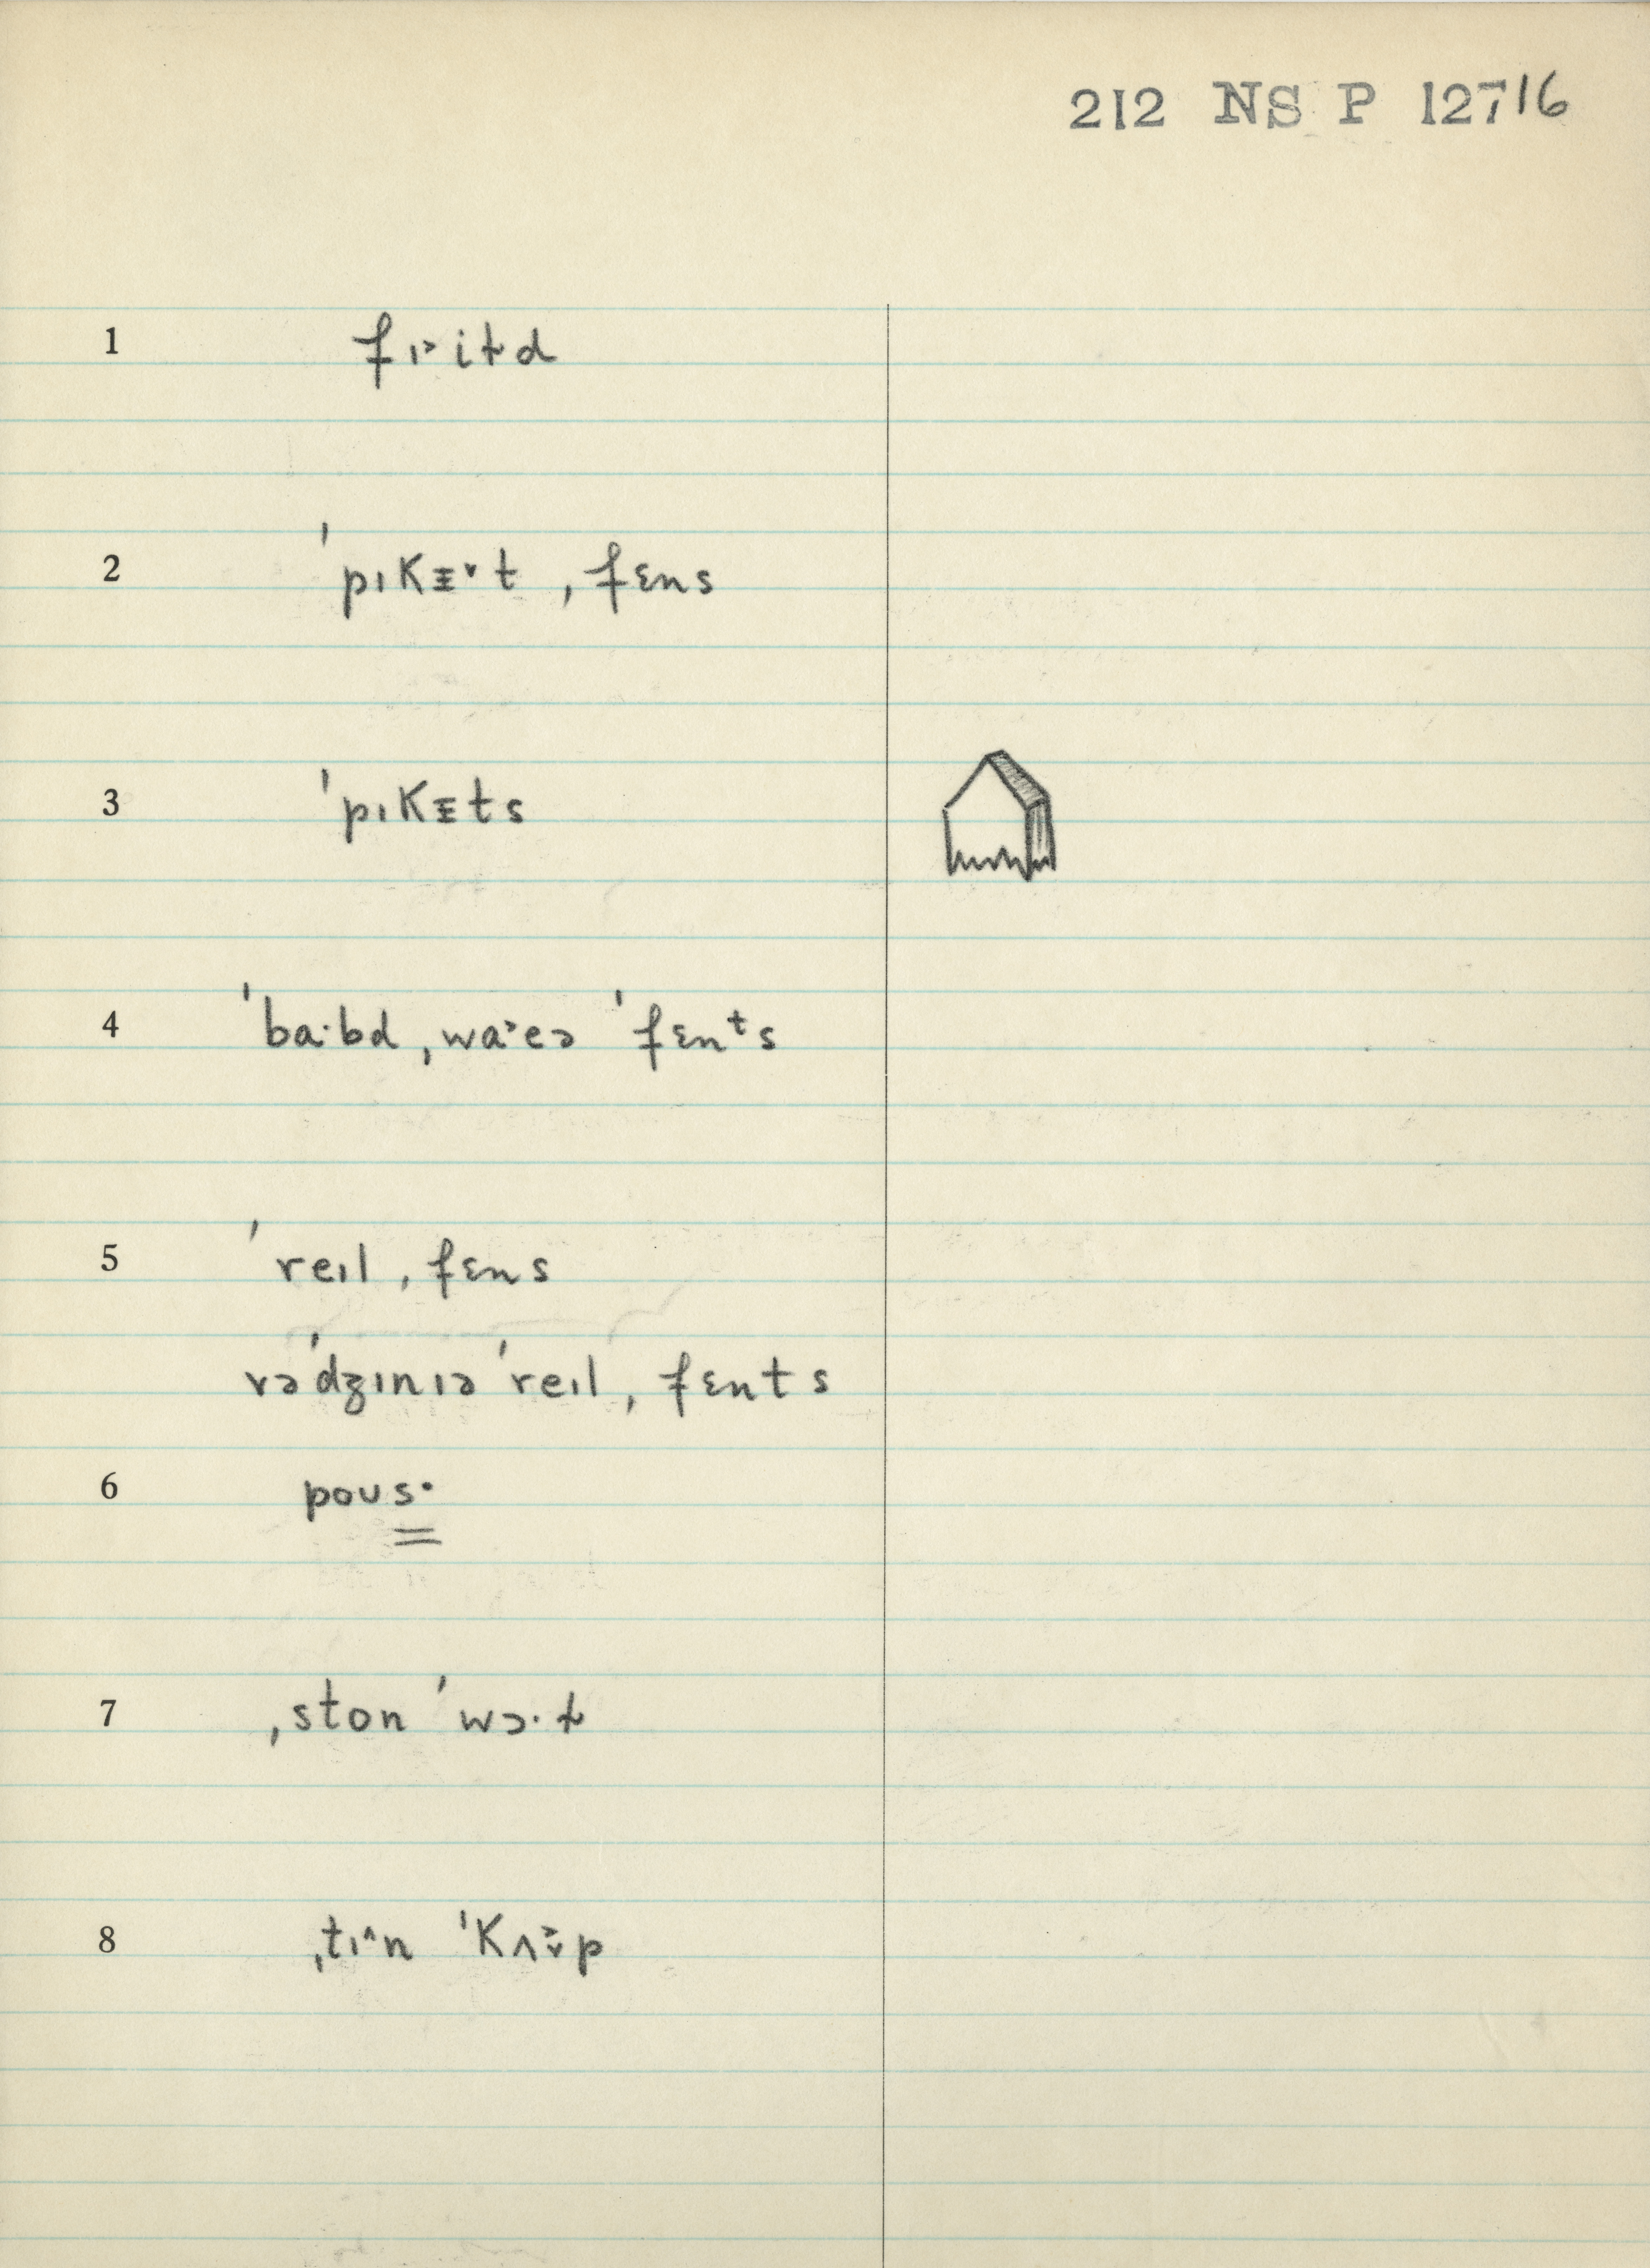 212 NS P 12716
1 fɪ˃iɫd
2 ˈpɪkᵻ˅t ˌfɛns
3 ˈpɪkᵻts
4 ˈba·bd ˌwa˃eə ˈfɛnᵗs
5 ˈreɪl ˌfɛns
vəˈdʒɪnɪə ˈreɪl ˌfɛnts
6 poʊs·
7 ˌston ˈwɔ·ɫ
8 ˌtɪ˄n ˈkʌ˅˃p